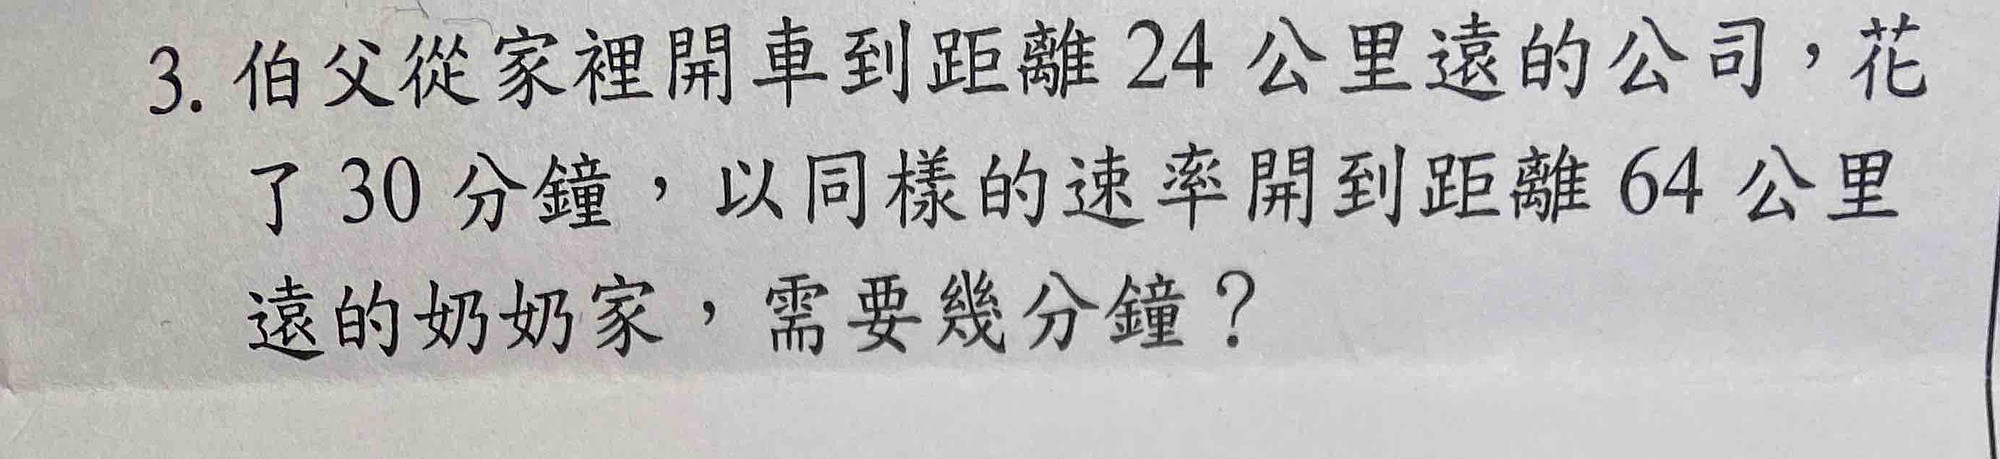 3. 伯父從家裡開車到距離 24 公里遠的公司，花
了 30 分鐘，以同樣的速率開到距離 64 公里
遠的奶奶家，需要幾分鐘？